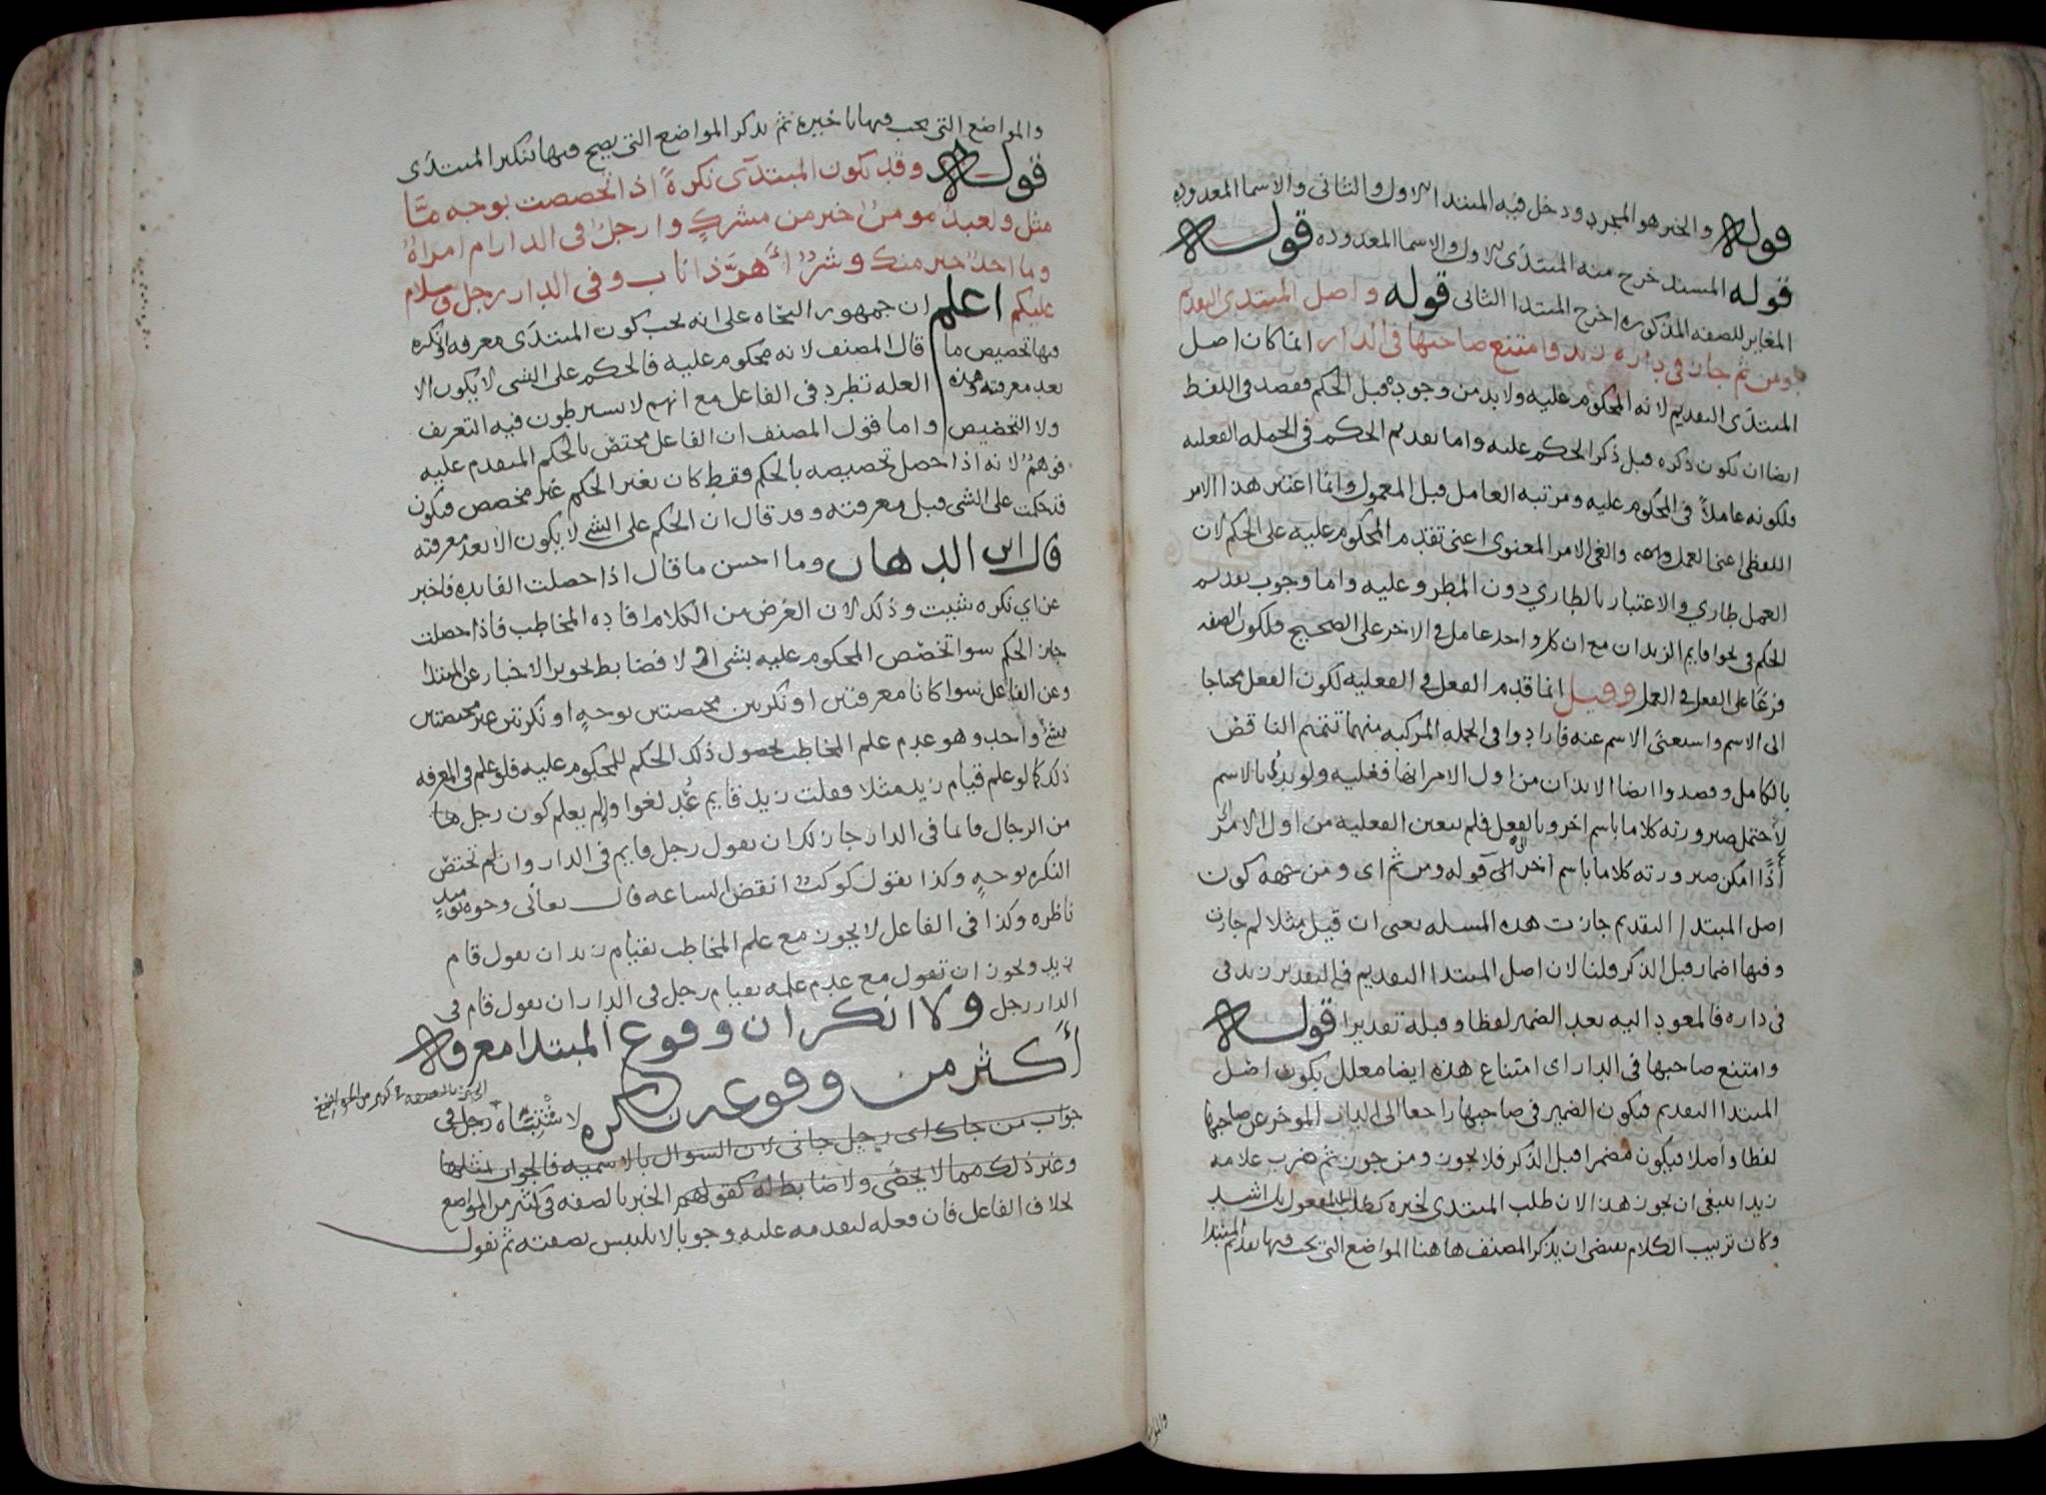 قوله والخبر هو المجرد ودخل فيه المبتدا الاول والثانى والاسما المعدوده
قوله المسند خرج منه المبتدى الاول والاسما المعدوده قوله
المغاير للصفه المذكوره اخرج المبتدا الثانى قوله واصل المبتدى التقديم
ومن ثم جاز فى داره زيد وامتنع صاحبها فى الدار انما كان اصل
المبتدى التقديم لانه المحكوم عليه ولابد من وجوده قبل الحكم فقصد فى اللفظ
ايضا ان يكون ذكره قبل ذكر الحكم عليه واما تقديم الحكم فى الجمله الفعليه
فلكونه عاملاً فى المحكوم عليه ومرتبه العامل قبل المعمول وانما اعتبر هذا الامر
اللفظى اعنى العمل والغى الامر المعنوى اعنى تقدم المحكوم عليه على الحكم لان
العمل طاري والاعتبار بالطاري دون المطرو عليه واما وجوب تقديم
الحكم فى نحو اقايم الزيدان مع ان كل واحد عامل فى الاخر على الصحيح فلكون الصفه
فرعًا على الفعل فى العمل وقيل انما قدم الفعل فى الفعليه لكون الفعل محتاجا
الى الاسم واستغنى الاسم عنه فارادوا فى الجمله المركبه منهما تتميم الناقص
بالكامل وقصدوا ايضا الايذان من اول الامر انها فعليه ولو بدئ بالاسم
لاحتمل صيرورته كلاما باسم اخر وبالفعل فلم تتعين الفعليه من اول الامر
اذًا امكن صيرورته كلاما باسم آخر قوله ومن ثم اى ومن جهه كون
اصل المبتدا التقديم جازت هذه المسله يعنى ان قيل مثلا لم جاز
وفيها اضمار قبل الذكر قلنا لان اصل المبتدا التقديم فالتقدير زيد فى
فى داره فالمعود اليه بعد الضمير لفظا وقبله تقديرا قوله
وامتنع صاحبها فى الدار اى امتناع هذه ايضا معلل بكون اصل
المبتدا التقديم فيكون الضمير فى صاحبها راجعا الى الدار الموخر عن صاحبها
لفظا واصلا فيكون مضمرا قبل الذكر فلا يجوز ومن جوز ثم ضرب غلامه
زيدا ينبغى ان يجوز هذا لان طلب المبتدى لخبره كطلب المفعول بل اشد
وكان ترتيب الكلام يقتضى ان يذكر المصنف هاهنا المواضع التى يجب فيها تقديم المبتدا
والمواضع التى يجب فيها تاخيره ثم يذكر المواضع التى يصح فيها تنكير المبتدى
قوله وقد يكون المبتدى نكرةً اذا تخصصت بوجه مّا
مثل ولعبدٌ مومنٌ خير من مشركٍ وارجلٌ فى الدار ام امراةٌ
وما احدٌ خير منك وشرٌ اهرّ ذا ناب وفى الدار رجل وسلام
عليكم اعلم ان جمهور النحاه على انه يجب كون المبتدى معرفه او نكره
فيها تخصيص ما قال المصنف لانه محكوم عليه فالحكم على الشى لا يكون الا
بعد معرفته وهذه العله تطرد فى الفاعل مع انهم لا يشترطون فيه التعريف
ولا التخصيص واما قول المصنف ان الفاعل مختص بالحكم المتقدم عليه
فوهمٌ لانه اذا حصل تخصيصه بالحكم فقط كان بغير الحكم غير مخصص فيكون
قد حكمت على الشى قبل معرفته وقد قال ان الحكم على الشى لا يكون الا بعد معرفته
قال ابن الدهان وما احسن ما قال اذا حصلت الفايده فاخبر
عن اي نكره شيت وذلك لان الغرض من الكلام افاده المخاطب فاذا حصلت
جاز الحكم سوا تخصص المحكوم عليه بشى اولا فضابط تجويز الاخبار عن المبتدا
وعن الفاعل سوا كانا معرفتين او نكرتين مختصتين بوجهٍ او نكرتين غير مختصتين
شئ واحد وهو عدم علم المخاطب بحصول ذلك الحكم للمحكوم عليه فلو علم فى المعرفه
ذلك كما لو علم قيام زيد مثلا فقلت زيد قايم عُد لغوا ولو لم يعلم كون رجل ما
من الرجال قايما فى الدار جاز لك ان تقول رجل قايم فى الدار وان لم تختص
النكره بوجهٍ وكذا تقول كوكبٌ انقض الساعه قال تعالى وجوه يوميذٍ
ناظره وكذا فى الفاعل لا يجوز مع علم المخاطب بقيام زيد ان تقول قام
زيد ويجوز ان تقول مع عدم علمه بقيام رجل فى الدار ان تقول قام فى
الدار رجل ولا انكر ان وقوع المبتدا معرفه
أكثر من وقوعه نكره لاشتباه رجل فى
جواب من جاك اى رجل جانى لان السوال بالاسميه فالجواب مثلها
وغير ذلك مما لا يحصى ولا ضابط له كقولهم الخبر بالصفه فى كثير من المواضع
بخلاف الفاعل فان فعله لتقدمه عليه وجوبا لا يلتبس بصفته ثم نقول